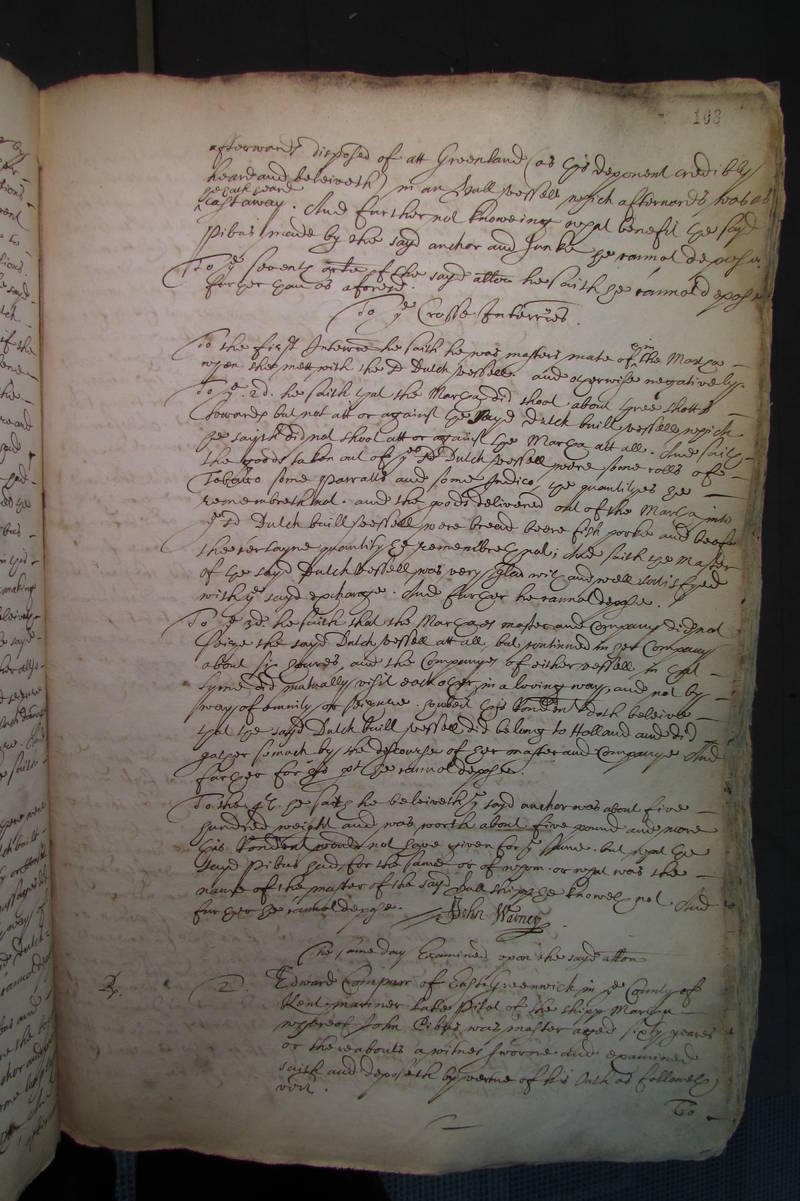 108
afterwards disposed of att Greenland (as this deponent credibly
heard and beleiveth) in an Hull vessell which afterwards was as
he hath heard
cast away. And further not knoweing what benefit the sayd
Pibus made by the sayd anchor and Junke he cannot depose.
To ye seventh arte of the sayd allon he saith he cannot depose
further than as aforesd.
To ye Crosse Interries.
To the first Interrie he saith he was masters mate of in the Marsha
when she mett with the sd Dutch vessell. and otherwise negatively.
To ye 2d. he saith that the Marsha did shoot about three shotts
towards but not att or against the sayd Dutch built vessell, which
he sayth did not shoot att or against the Marsha att all. And saith
the goods taken out of ye sd Dutch vessell were some rolls of
Tobacco some parratts and some Indico, the quantityes he
remembreth not. and the goods delivered out of the Marsha into
ye sd Dutch built vessell were bread beere fish porke and beefe
the certayne quantity he remembreth not; And saith the Master
of the sayd Dutch vessell was very glad with and well satisfyed
with ye sayd exchange. And further he cannot depose.
To ye 3d. he saith that the Marsha's master and Company did not
seize the sayd Dutch vessell att all, but continued in her Company
about six houres, and the Companyes of either vessell in that
tyme did mutually visit each other, in a loving way, and not by
way of enmity or seizure. this Rendent doth beleive
that the sayd Dutch built vessell did belong to Holland and did
gather so much by the discourse of her master and Companye And
further for his pt he cannot depose.
To the 4th. he saith he beleiveth ye sayd anchor was about five
hundred weight and was worth about five pound and more
this Rendent would not have given for ye same. but what the
sayd Pibus had for the same or of whom or what was the
name of the master of the sayd Hull shipp he knoweth not And
further he cannot depose.
John Warney
The same day Examined upon the sayd allon
2. Edward Compar of East Greenwich in ye County of
Kent mariner late Pilot of the shipp Marsha
whereof John Pibus was master aged sixty yeares
or thereabouts a witnes sworne and examined
saith and deposeth by vertue of his Oath as followeth
vizt.
To